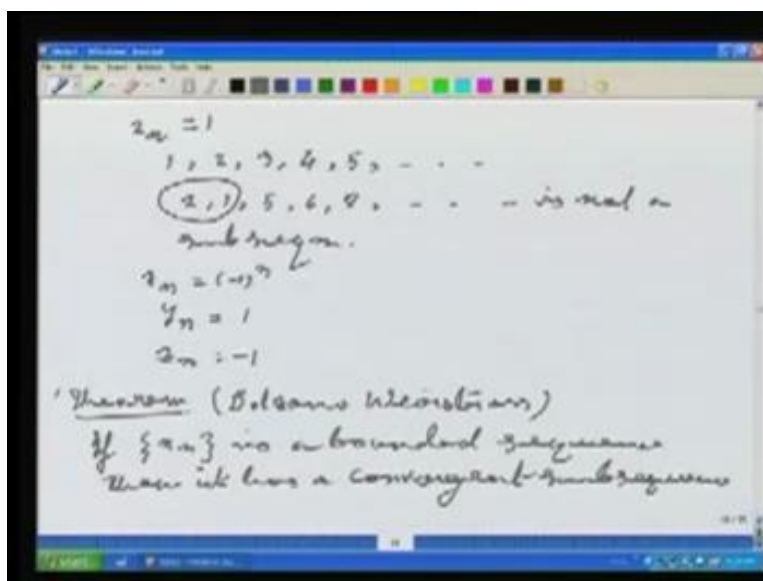 z_n = 1
1, 2, 3, 4, 5, - - -
2, 1, 5, 6, 8, - - - - is not a
subseqn.
x_n = (-1)^n
y_n = 1
z_n = -1
Theorem (Bolzano Weirstrass)
If {x_n} is a bounded sequence
then it has a convergent subsequence